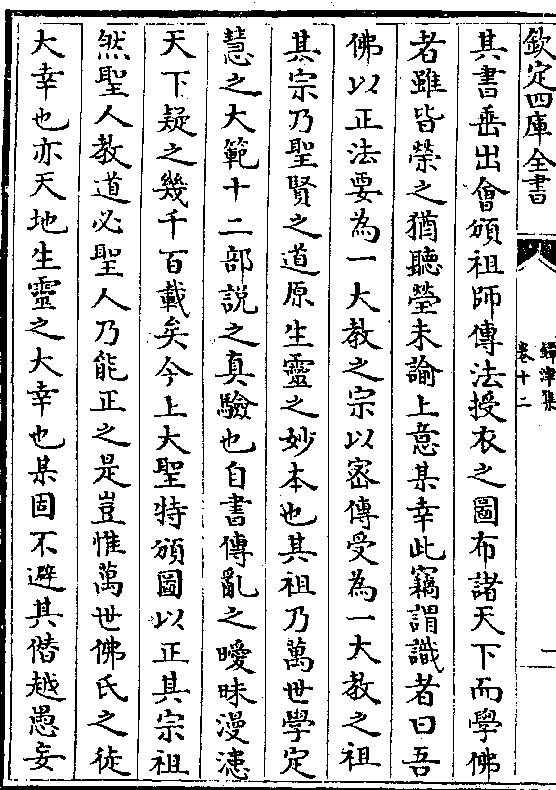 欽定四庫全書
鐔津集
卷十二
一
其書垂出會頒祖師傳法授衣之圖布諸天下而學佛
者雖皆榮之猶聽瑩未諭上意某幸此竊謂識者曰吾
佛以正法要為一大教之宗以密傳受為一大教之祖
其宗乃聖賢之道原生靈之妙本也其祖乃萬世學定
慧之大範十二部說之真驗也自書傳亂之曖昧漫漶
天下疑之幾千百載矣今上大聖特頒圖以正其宗祖
然聖人教道必聖人乃能正之是豈惟萬世佛氏之徒
大幸也亦天地生靈之大幸也某固不避其僭越愚妄